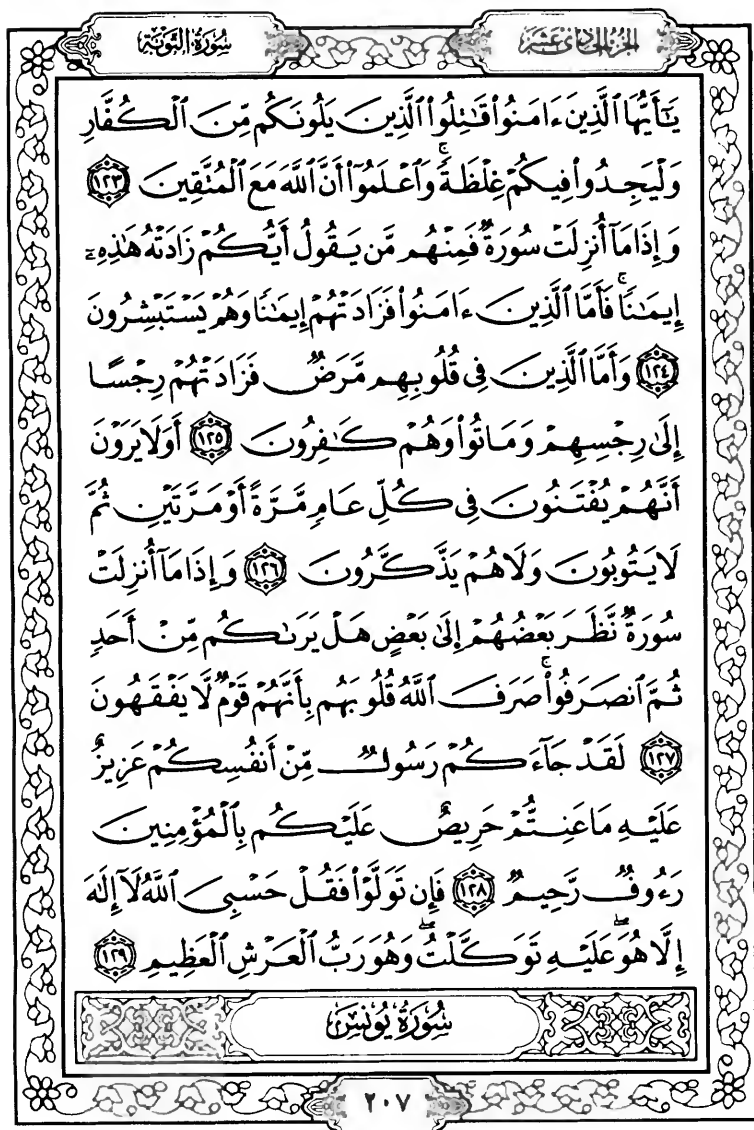 الجزء الحادي عشر
سورة التوبة
يَٰٓأَيُّهَا ٱلَّذِينَ ءَامَنُوا۟ قَٰتِلُوا۟ ٱلَّذِينَ يَلُونَكُم مِّنَ ٱلْكُفَّارِ
وَلْيَجِدُوا۟ فِيكُمْ غِلْظَةً ۚ وَٱعْلَمُوٓا۟ أَنَّ ٱللَّهَ مَعَ ٱلْمُتَّقِينَ ١٢٣
وَإِذَا مَآ أُنزِلَتْ سُورَةٌ فَمِنْهُم مَّن يَقُولُ أَيُّكُمْ زَادَتْهُ هَٰذِهِۦٓ
إِيمَٰنًا ۚ فَأَمَّا ٱلَّذِينَ ءَامَنُوا۟ فَزَادَتْهُمْ إِيمَٰنًا وَهُمْ يَسْتَبْشِرُونَ
١٢٤ وَأَمَّا ٱلَّذِينَ فِى قُلُوبِهِم مَّرَضٌ فَزَادَتْهُمْ رِجْسًا
إِلَىٰ رِجْسِهِمْ وَمَاتُوا۟ وَهُمْ كَٰفِرُونَ ١٢٥ أَوَلَا يَرَوْنَ
أَنَّهُمْ يُفْتَنُونَ فِى كُلِّ عَامٍ مَّرَّةً أَوْ مَرَّتَيْنِ ثُمَّ
لَا يَتُوبُونَ وَلَا هُمْ يَذَّكَّرُونَ ١٢٦ وَإِذَا مَآ أُنزِلَتْ
سُورَةٌ نَّظَرَ بَعْضُهُمْ إِلَىٰ بَعْضٍ هَلْ يَرَىٰكُم مِّنْ أَحَدٍ
ثُمَّ ٱنصَرَفُوا۟ ۚ صَرَفَ ٱللَّهُ قُلُوبَهُم بِأَنَّهُمْ قَوْمٌ لَّا يَفْقَهُونَ
١٢٧ لَقَدْ جَآءَكُمْ رَسُولٌ مِّنْ أَنفُسِكُمْ عَزِيزٌ
عَلَيْهِ مَا عَنِتُّمْ حَرِيصٌ عَلَيْكُم بِٱلْمُؤْمِنِينَ
رَءُوفٌ رَّحِيمٌ ١٢٨ فَإِن تَوَلَّوْا۟ فَقُلْ حَسْبِىَ ٱللَّهُ لَآ إِلَٰهَ
إِلَّا هُوَ ۖ عَلَيْهِ تَوَكَّلْتُ ۖ وَهُوَ رَبُّ ٱلْعَرْشِ ٱلْعَظِيمِ ١٢٩
سورة يونس
٢٠٧